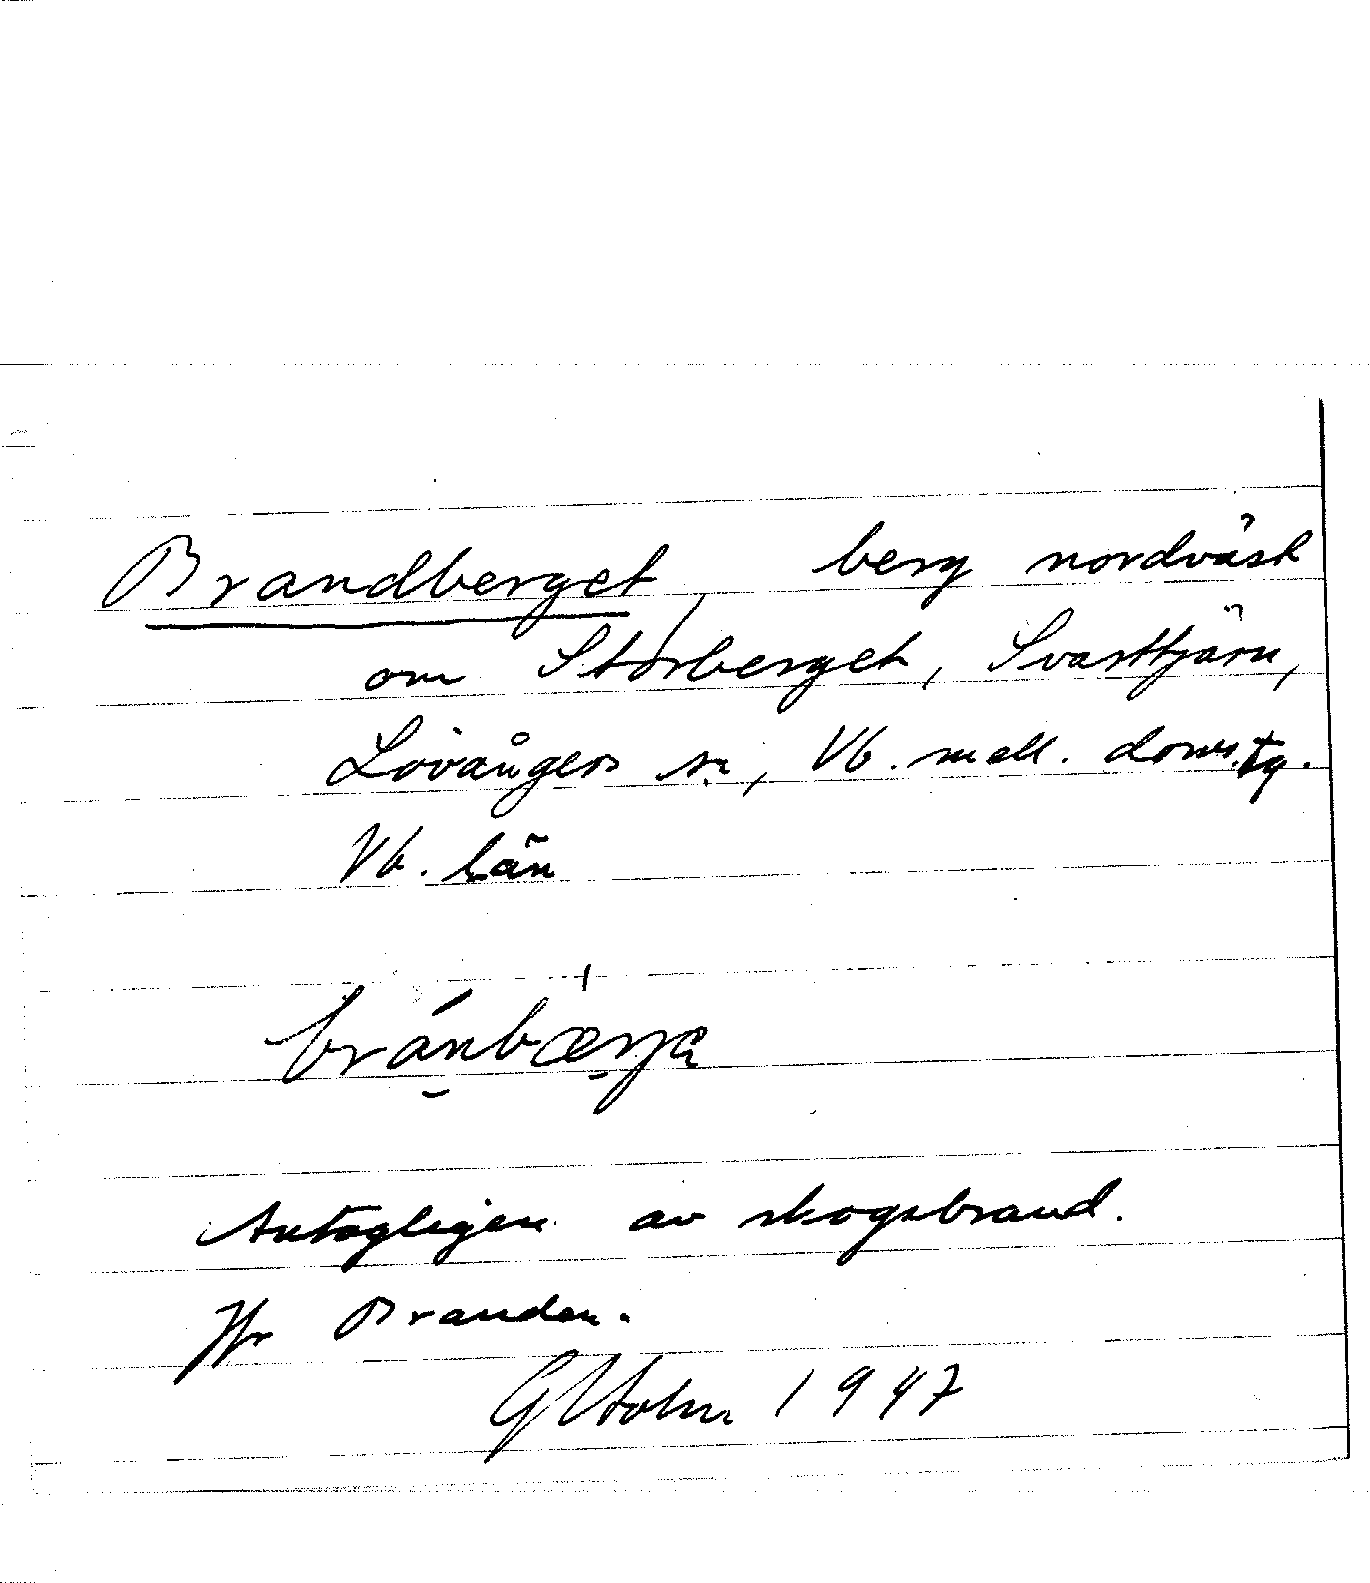 Brandberget, berg nordväst
om Storberget, Svarttjärn,
Lövångers sn, Vb. mell. doms.tg.
Vb. län
bránbærjɑ
Antagligen av skogsbrand.
Jfr Branden.
G Holm 1947